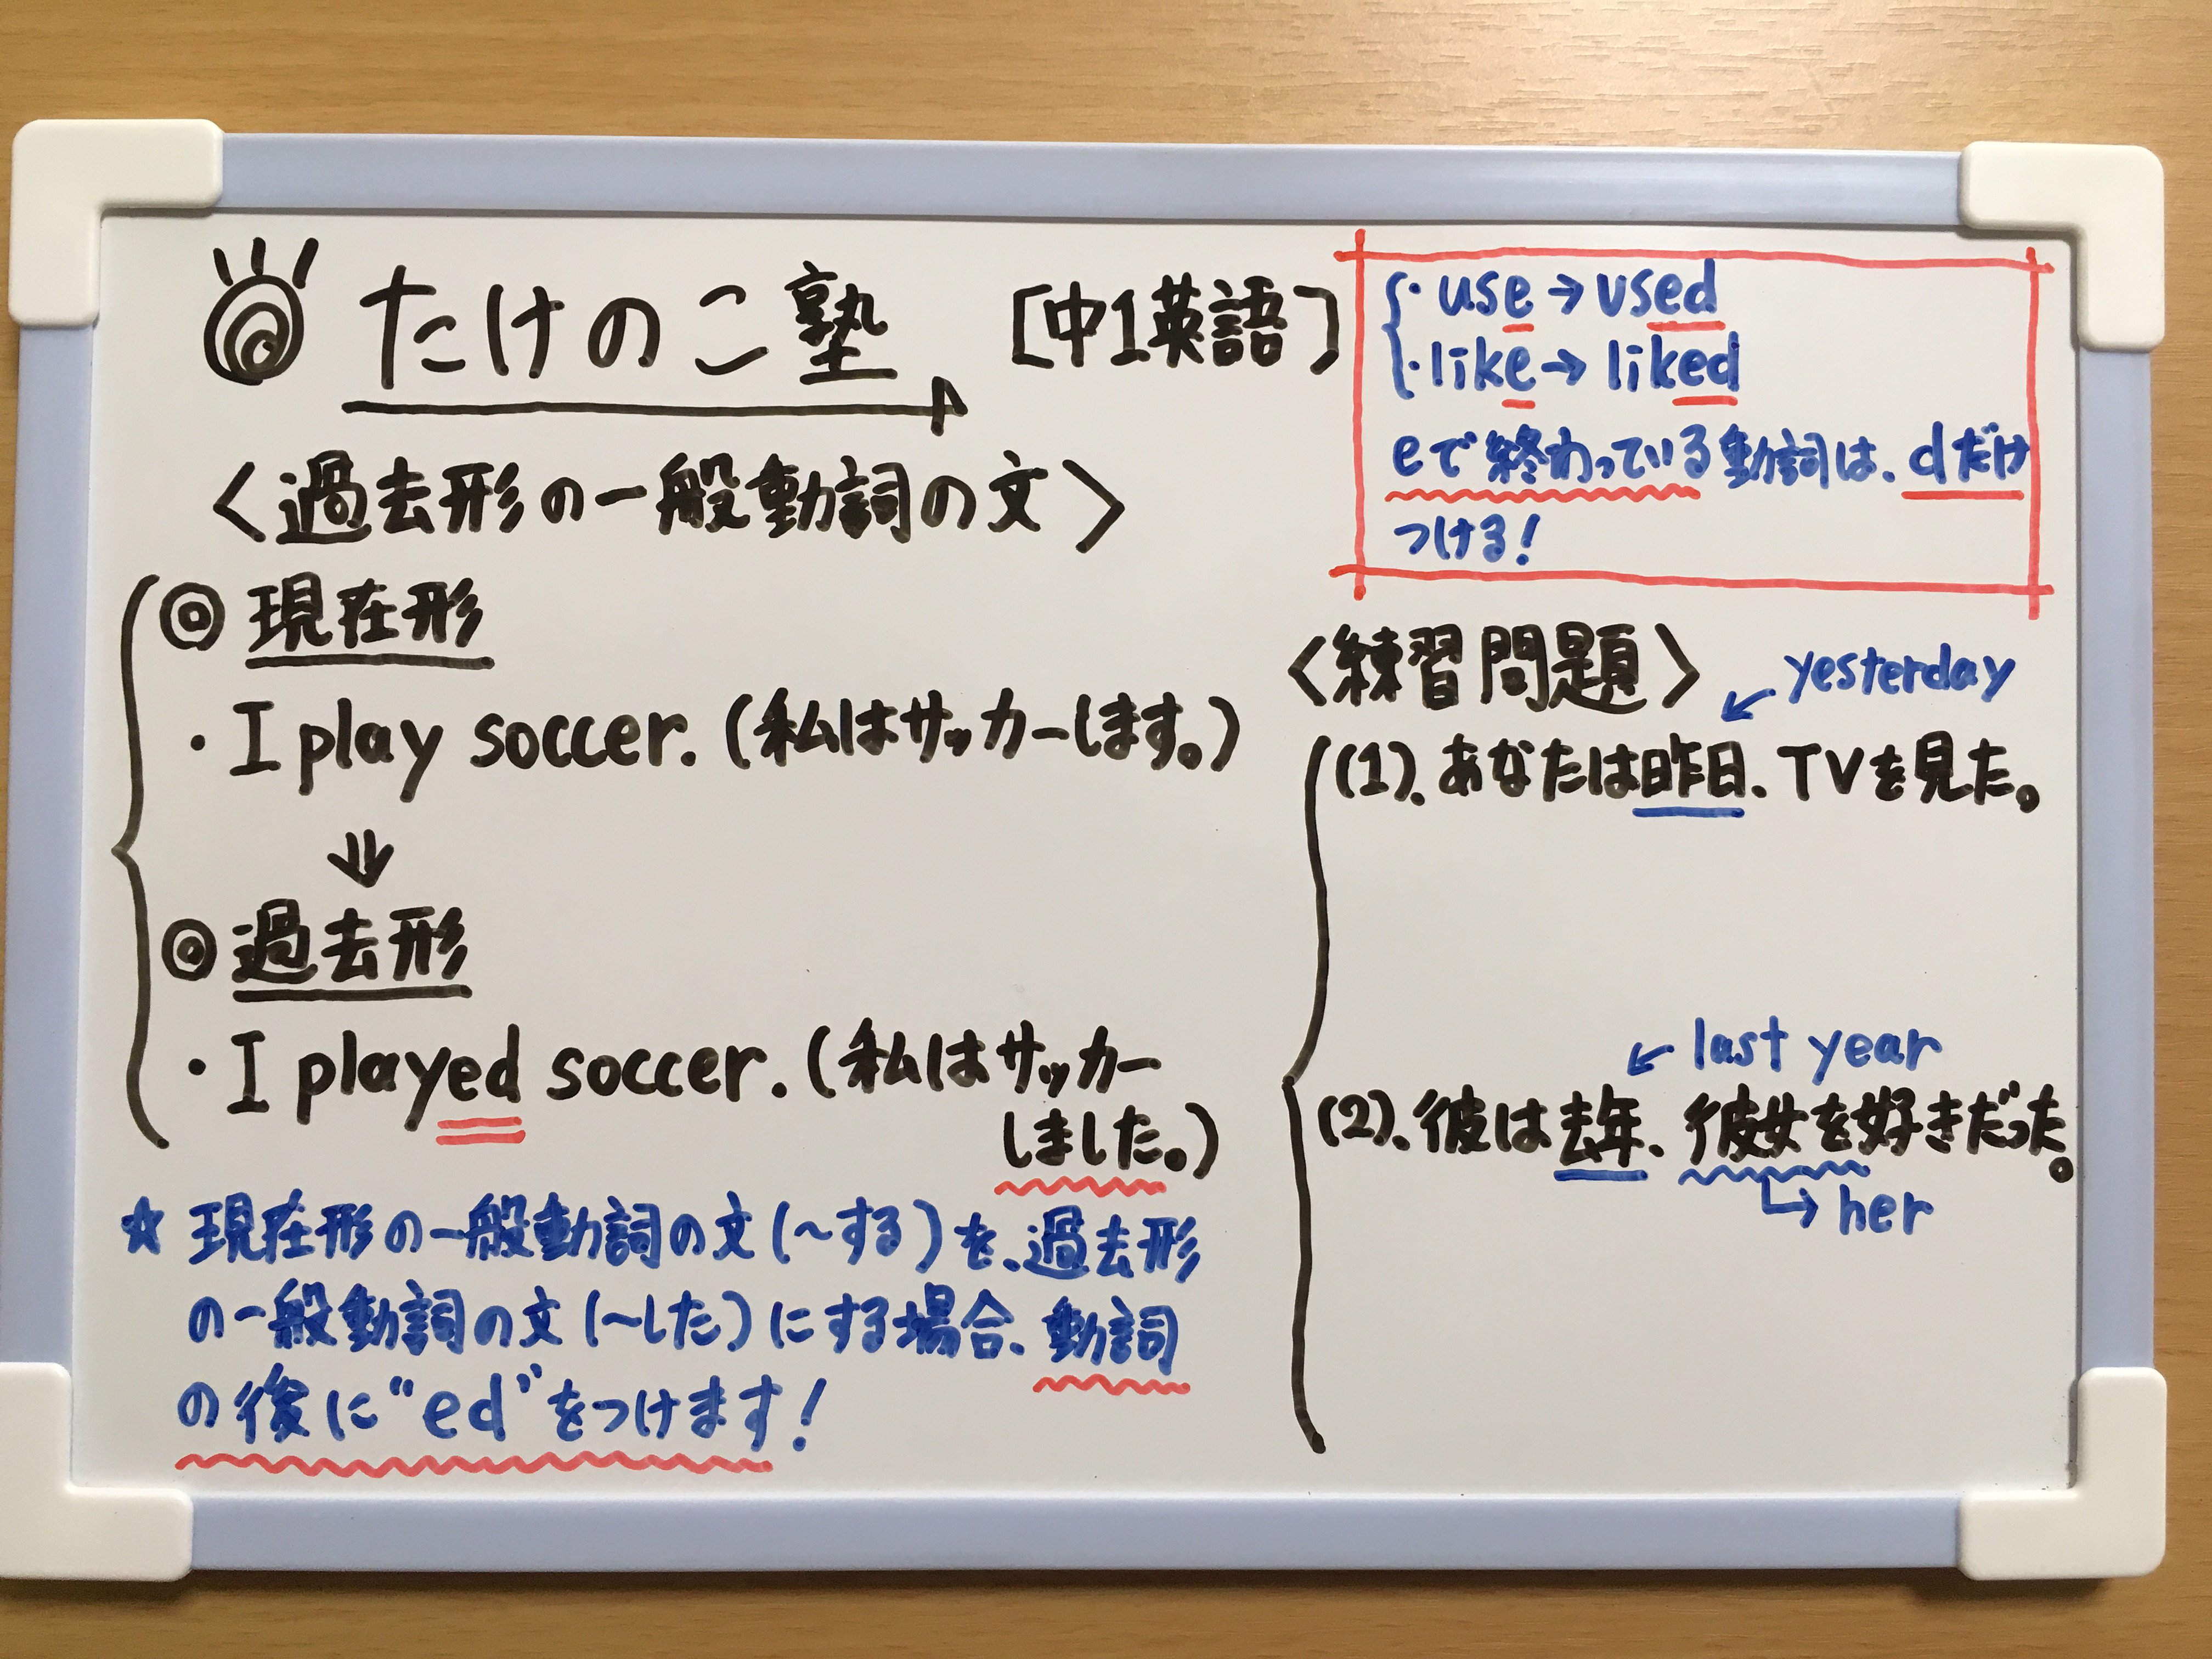 たけのこ塾
[中1英語]
<過去形の一般動詞の文>
◎ 現在形
・I play soccer. (私はサッカーします。)
⇓
◎ 過去形
・I played soccer. (私はサッカー
しました。)
☆ 現在形の一般動詞の文(~する)を、過去形
の一般動詞の文(~した)にする場合、動詞
の後に"ed"をつけます!
・use → used
・like → liked
eで終わっている動詞は、dだけ
つける!
<練習問題>
yesterday
(1). あなたは昨日、TVを見た。
last year
(2). 彼は去年、彼女を好きだった。
her